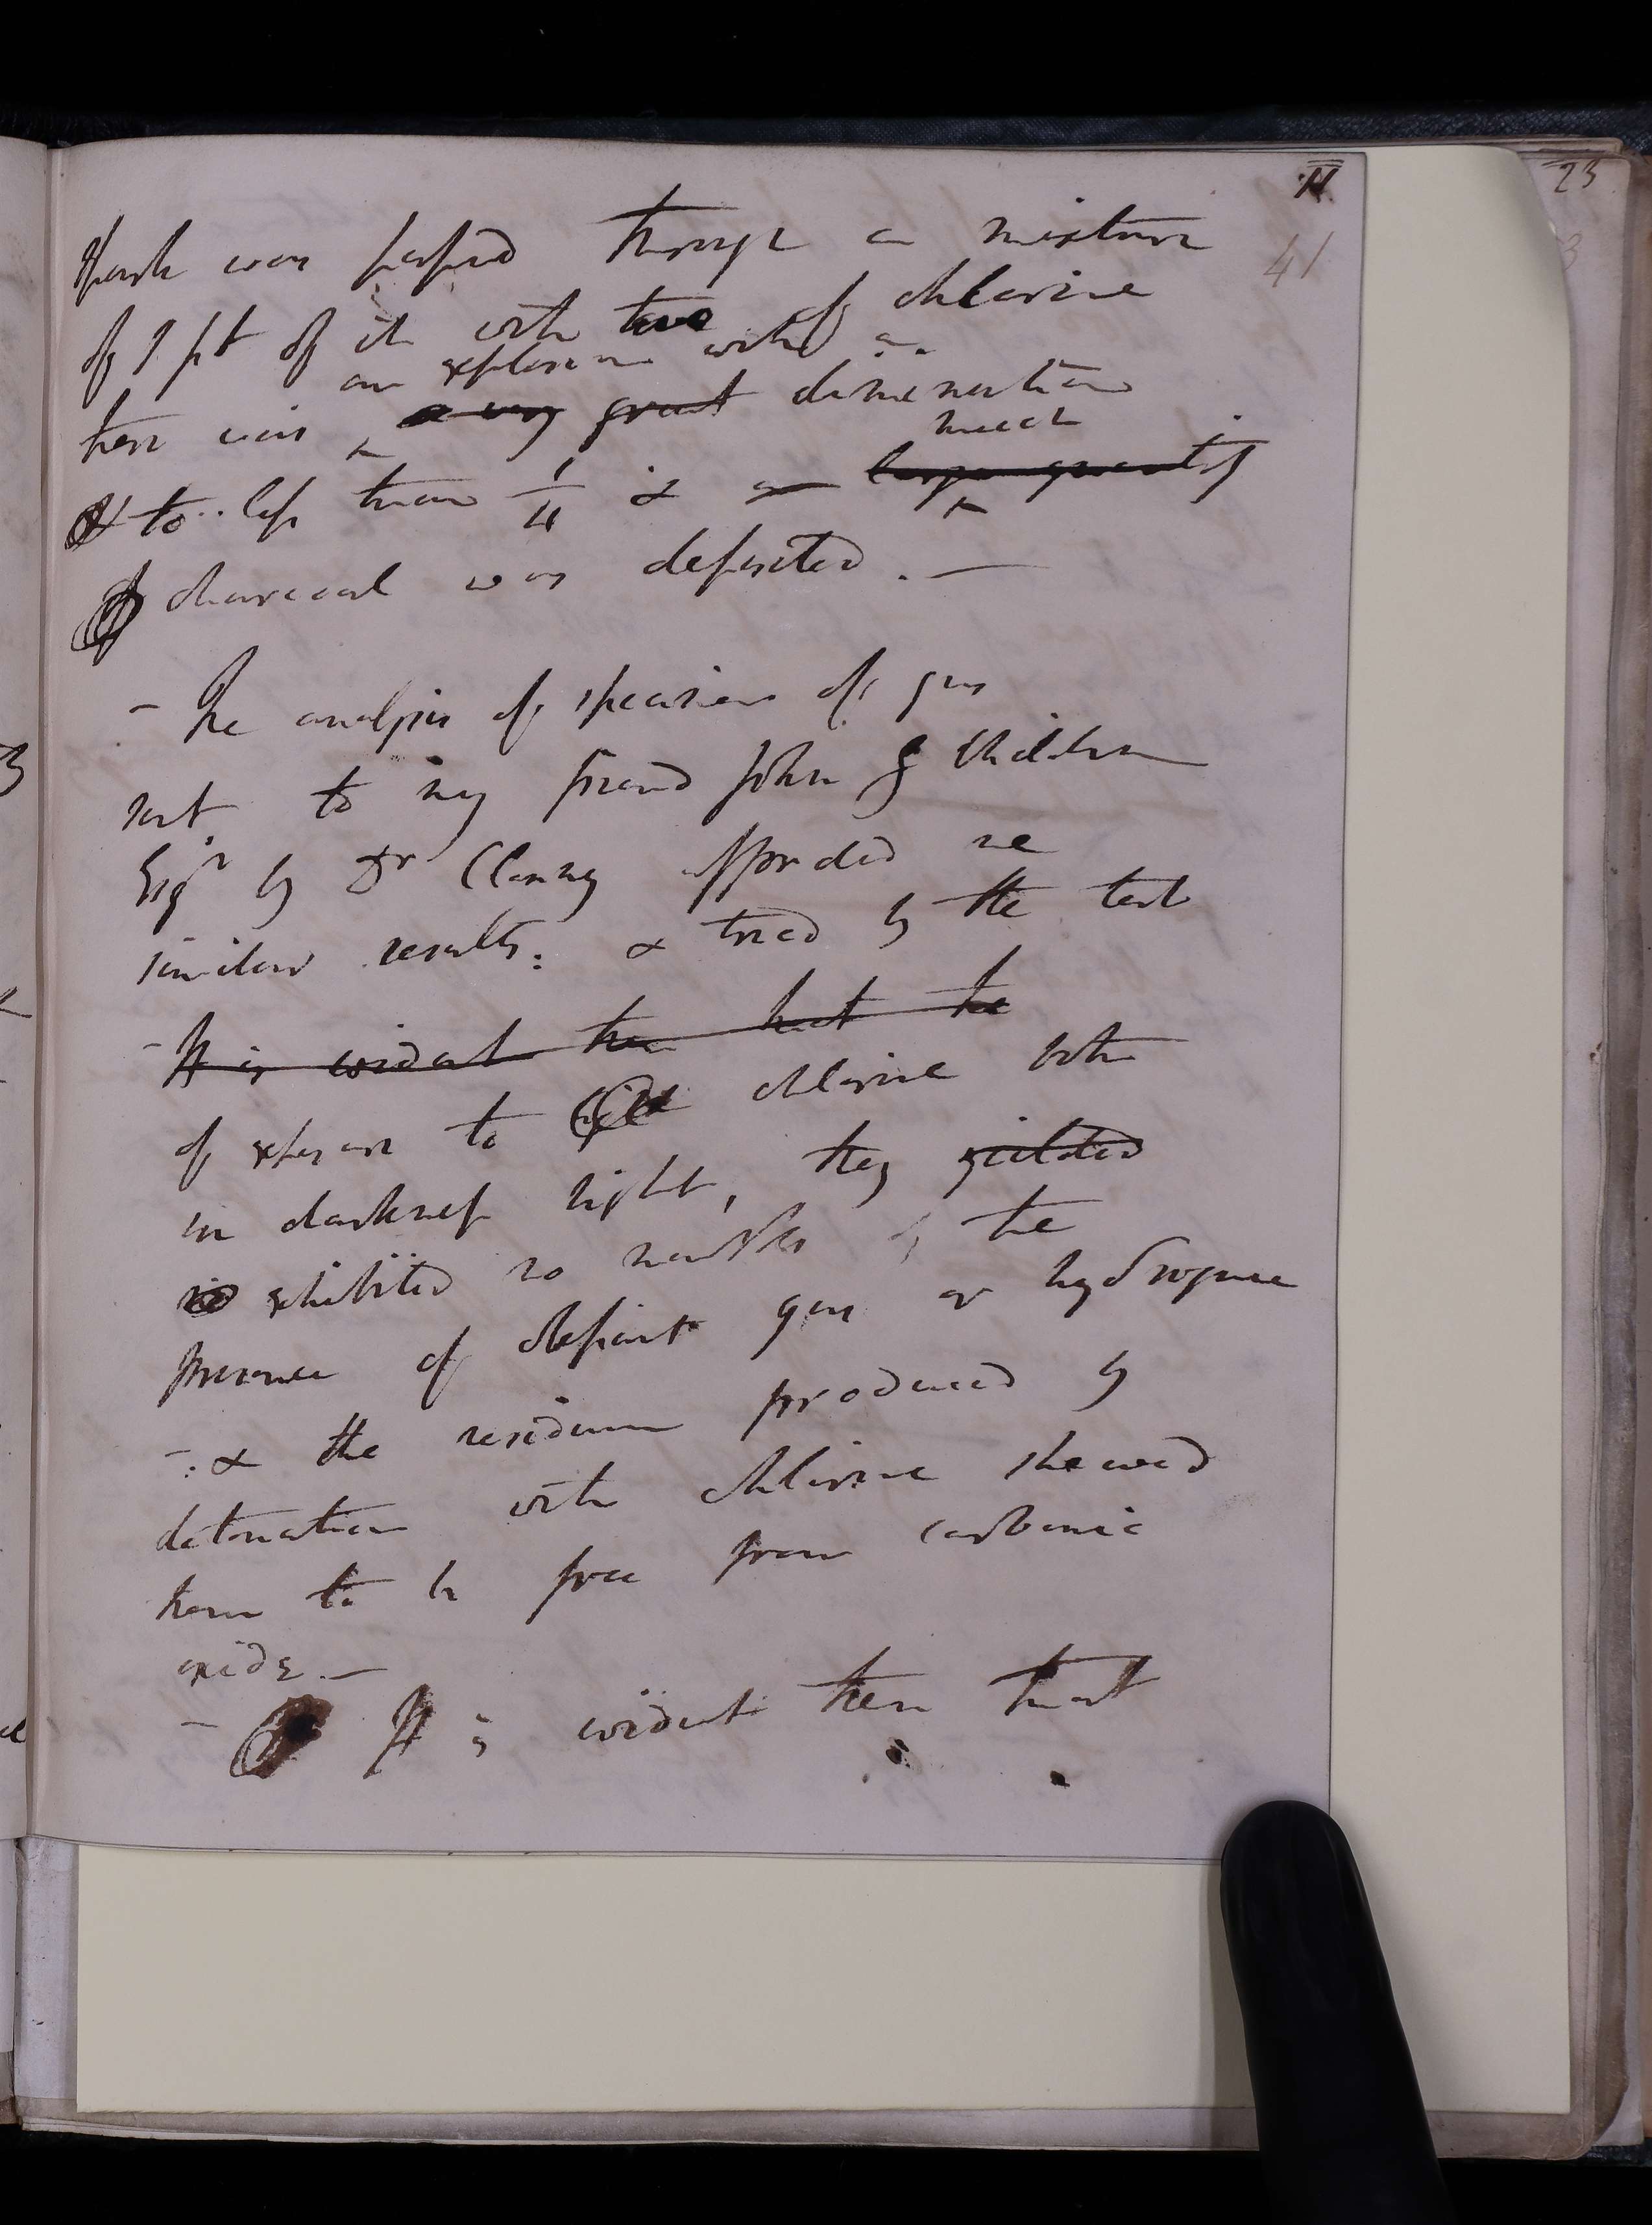 41
23
spark was passed through a mixture
of 1 pt of it with two of chlorine
an explosion with a
there was a very great diminution
much
& to less than 1/4 & a large quantity
of charcoal was deposited. —
- The analysis of specimens of gas
sent to my friend John G Children
Esqr by Dr Clanny afforded me
similar results: & tried by the test
- It is evident then that the
of exposure to chlorine both
in darkness light, they yielded
exhibited no marks of the
presence of olefiant gas or hydrogene
-: & the residuum produced by
detonation with chlorine shewed
them to be free from carbonic
oxide. —
- It is evident then that